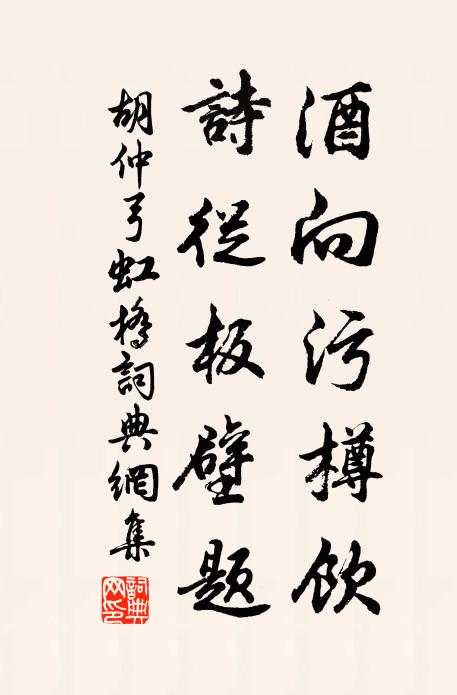 酒向污樽飲
詩從板壁題
胡仲弓虹橋詞典網集
詞典网印